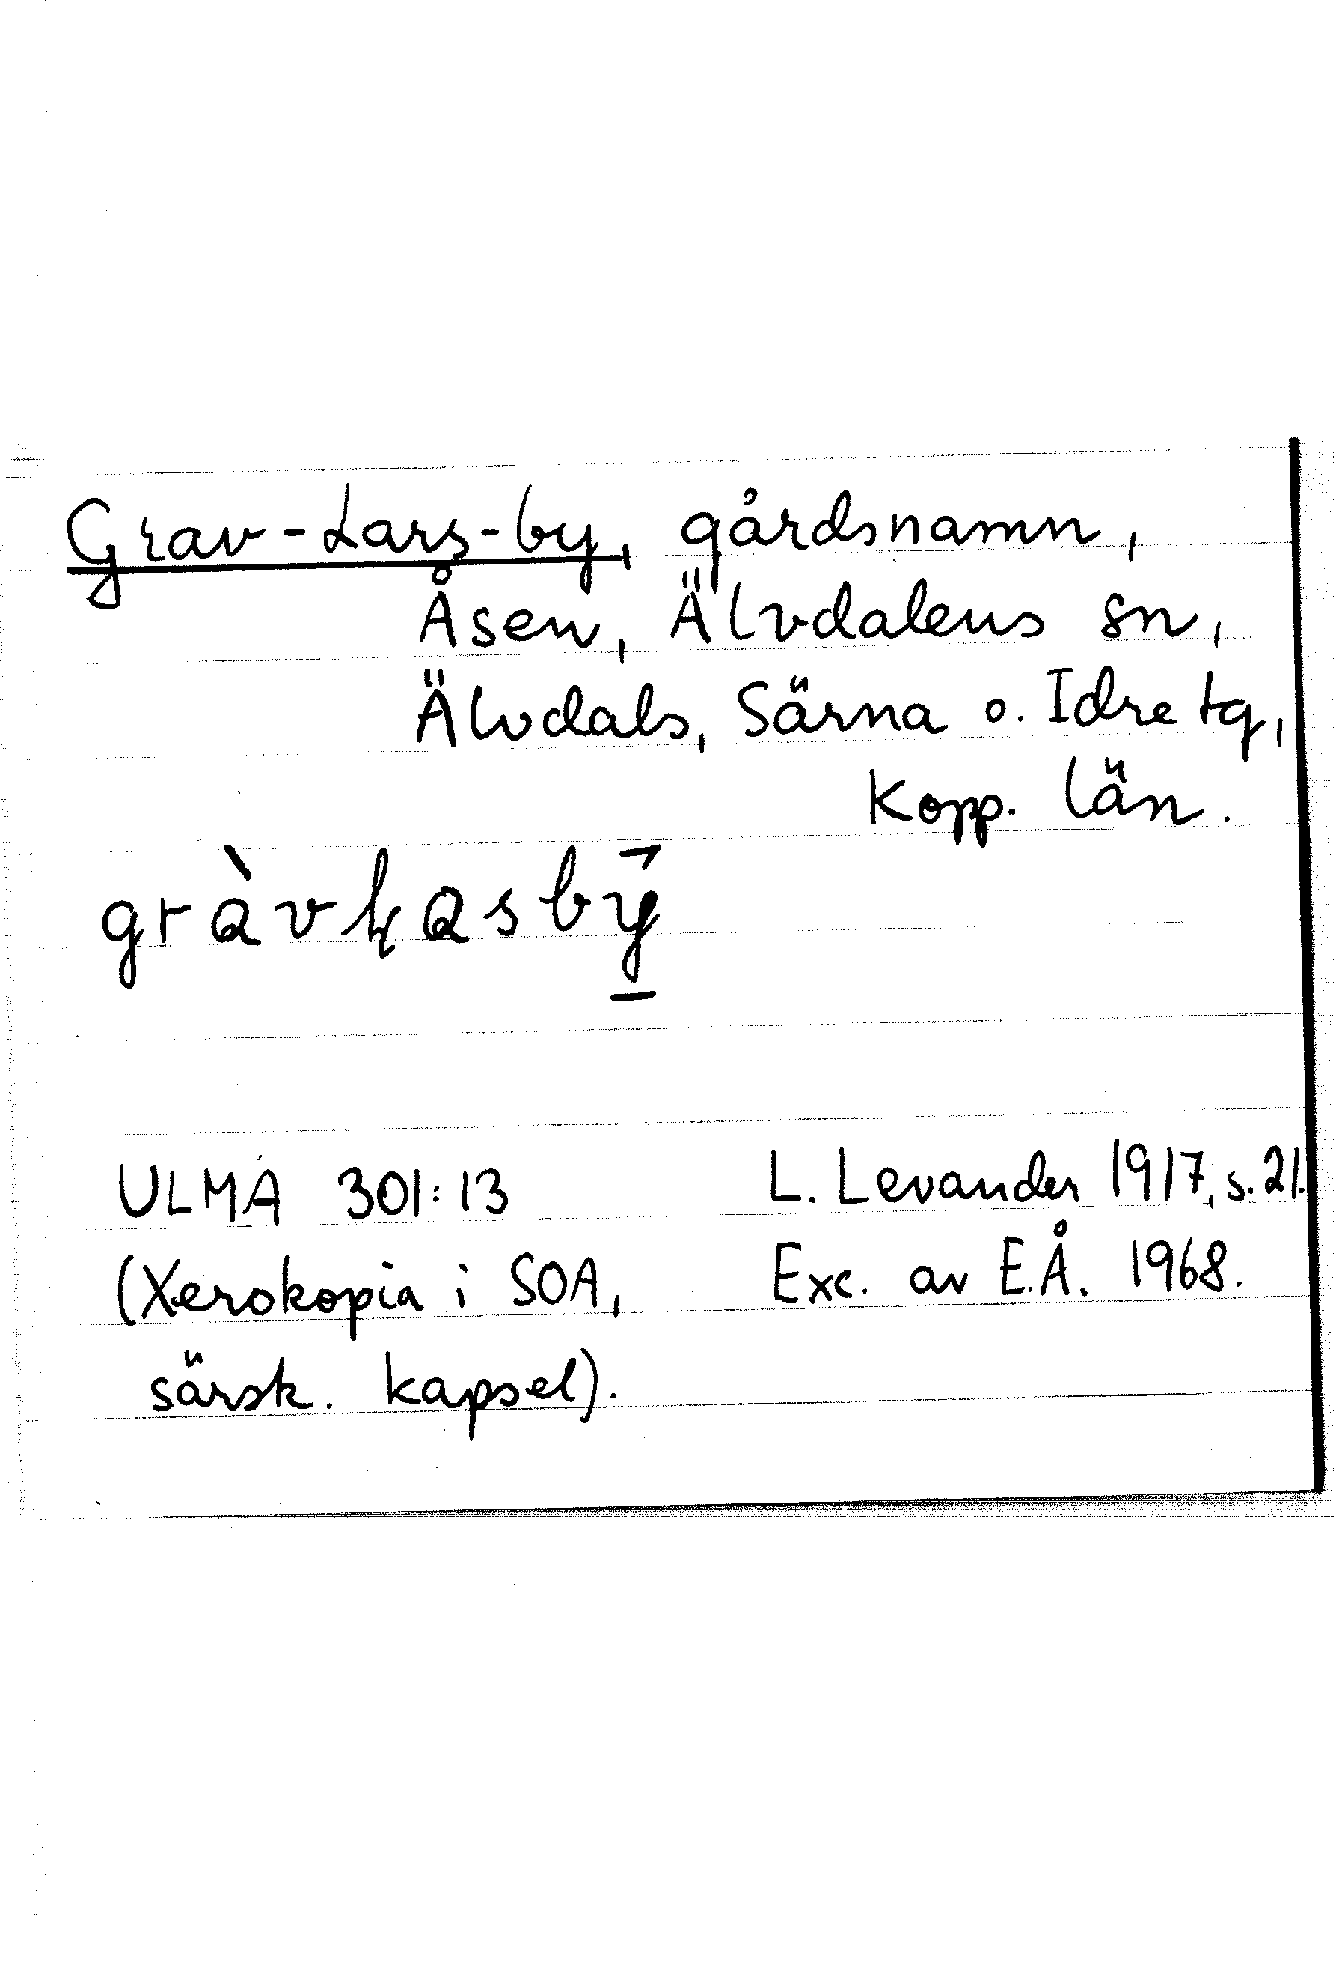 Grav-Lars-by, gårdsnamn,
Åsen, Älvdalens sn,
Älvdals, Särna o. Idre tg,
Kopp. län.
ULMA 301:13 L. Levander 1917, s. 21.
(Xerokopia i SOA, Exc. av E.Å. 1968.
särsk. kapsel).